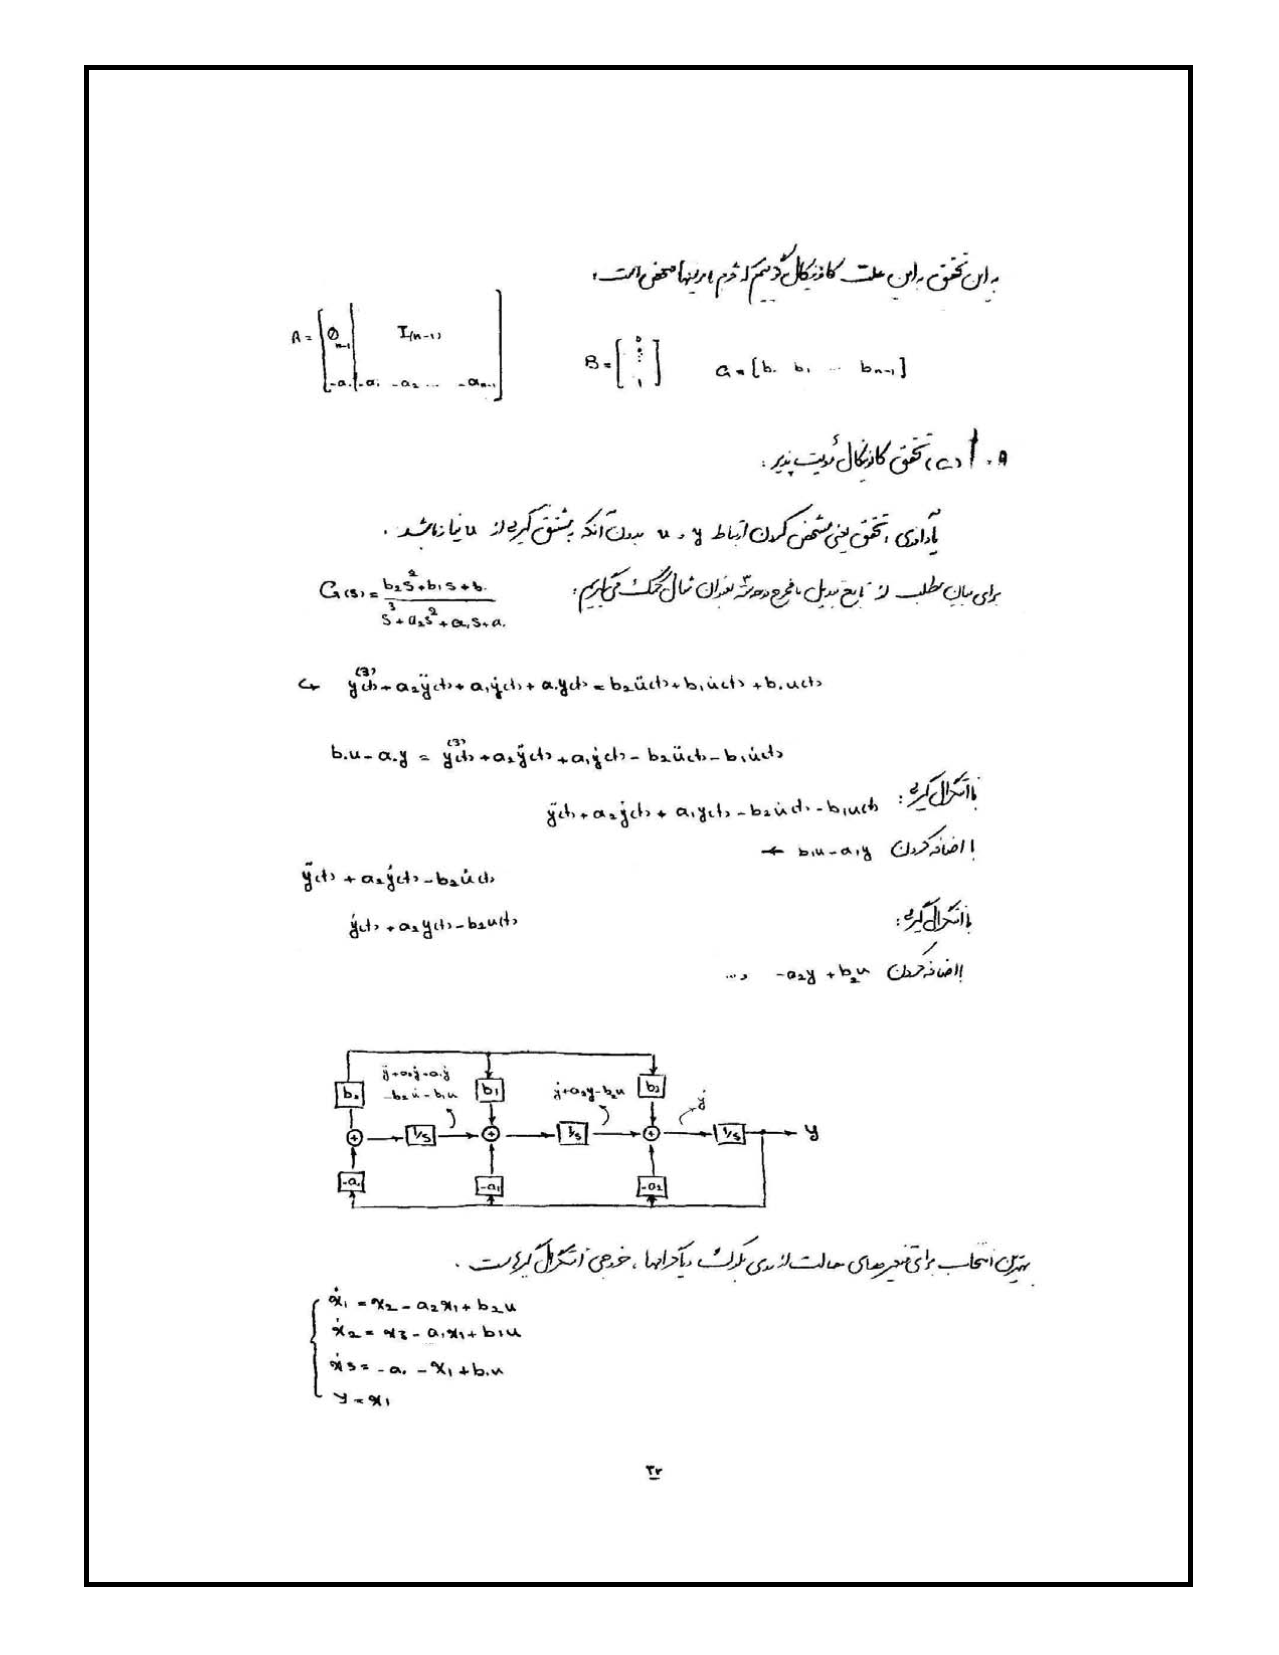 به این تحقق به این علت کانونیکال گوییم که فرم ماتریسها مشخص است:
A = [ 0 n-1 | I(n-1) ; -a. | -a₁ -a₂ ... -aₙ₋₁ ]   B = [ 0 ⋮ 1 ]   C = [b. b₁ ... bₙ₋₁]
(c) تحقق کانونیکال رویت پذیر:
یادآوری: تحقق یعنی مشخص کردن ارتباط y و u بدون آنکه به مشتق گیری از u نیاز باشد.
برای بیان مطلب از تابع تبدیل با مخرج درجه ۳ بعنوان مثال کمک می‌گیریم: G(s) = (b₂s²+b₁s+b.) / (s³+a₂s²+a₁s+a.)
↳ y⁽³⁾(t) + a₂ÿ(t) + a₁ẏ(t) + a.y(t) = b₂ü(t) + b₁u̇(t) + b.u(t)
b.u - a.y = y⁽³⁾(t) + a₂ÿ(t) + a₁ẏ(t) - b₂ü(t) - b₁u̇(t)
با انتگرال گیری: ÿ(t) + a₂ẏ(t) + a₁y(t) - b₂u̇(t) - b₁u(t)
با اضافه کردن b₁u - a₁y ←
ÿ(t) + a₂ẏ(t) - b₂u̇(t)
با انتگرال گیری: ẏ(t) + a₂y(t) - b₂u(t)
با اضافه کردن -a₂y + b₂u و ...
ÿ+a₂ẏ+a₁y
-b₂u̇-b₁u
ẏ+a₂y-b₂u
ẏ
b. b₁ b₂
+ 1/s + 1/s + 1/s y
-a. -a₁ -a₂
بهترین انتخاب برای متغیرهای حالت از روی بلوک دیاگرامها، خروجی انتگرال گیرهاست.
ẋ₁ = x₂ - a₂x₁ + b₂u
ẋ₂ = x₃ - a₁x₁ + b₁u
ẋ₃ = -a. - x₁ + b.u
y = x₁